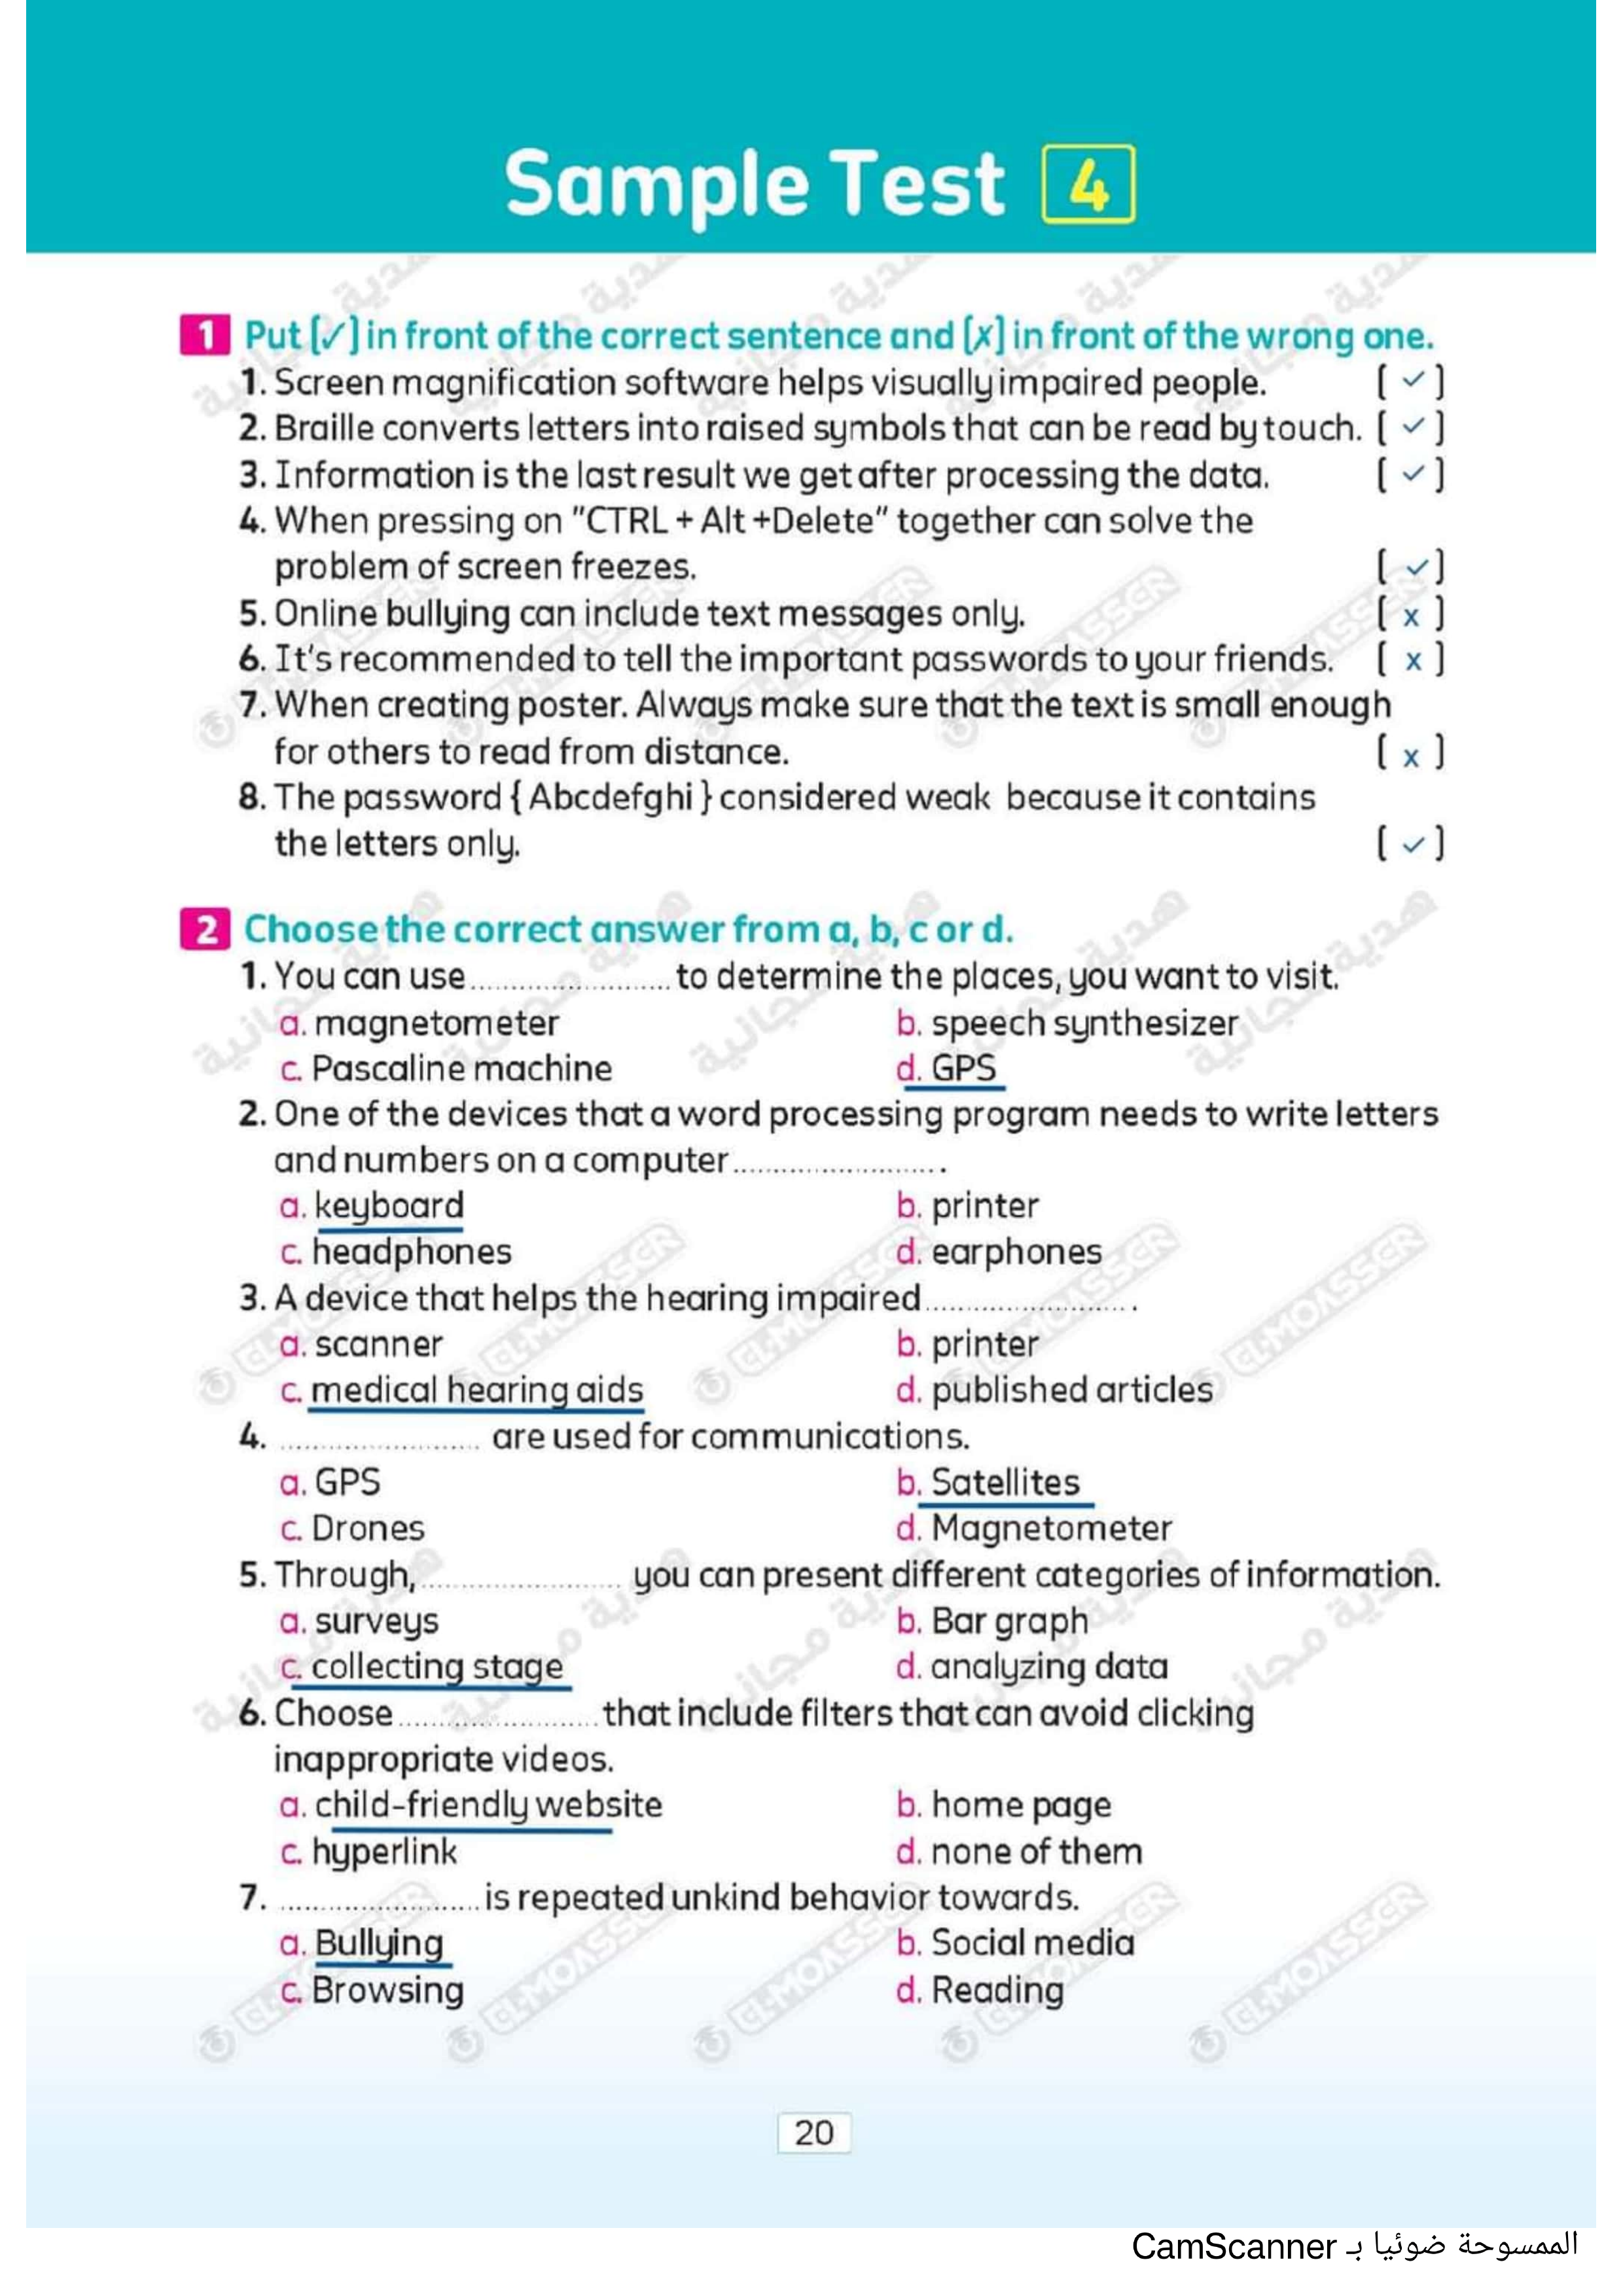 Sample Test 4
1 Put [✓] in front of the correct sentence and [x] in front of the wrong one.
1. Screen magnification software helps visually impaired people. [ ✓ ]
2. Braille converts letters into raised symbols that can be read by touch. [ ✓ ]
3. Information is the last result we get after processing the data. [ ✓ ]
4. When pressing on "CTRL + Alt +Delete" together can solve the
problem of screen freezes. [ ✓ ]
5. Online bullying can include text messages only. [ x ]
6. It's recommended to tell the important passwords to your friends. [ x ]
7. When creating poster. Always make sure that the text is small enough
for others to read from distance. [ x ]
8. The password { Abcdefghi } considered weak because it contains
the letters only. [ ✓ ]
2 Choose the correct answer from a, b, c or d.
1. You can use ........................ to determine the places, you want to visit.
a. magnetometer b. speech synthesizer
c. Pascaline machine d. GPS
2. One of the devices that a word processing program needs to write letters
and numbers on a computer ........................ .
a. keyboard b. printer
c. headphones d. earphones
3. A device that helps the hearing impaired ........................ .
a. scanner b. printer
c. medical hearing aids d. published articles
4. ........................ are used for communications.
a. GPS b. Satellites
c. Drones d. Magnetometer
5. Through, ........................ you can present different categories of information.
a. surveys b. Bar graph
c. collecting stage d. analyzing data
6. Choose ........................ that include filters that can avoid clicking
inappropriate videos.
a. child-friendly website b. home page
c. hyperlink d. none of them
7. ........................ is repeated unkind behavior towards.
a. Bullying b. Social media
c. Browsing d. Reading
20
الممسوحة ضوئيا بـ CamScanner